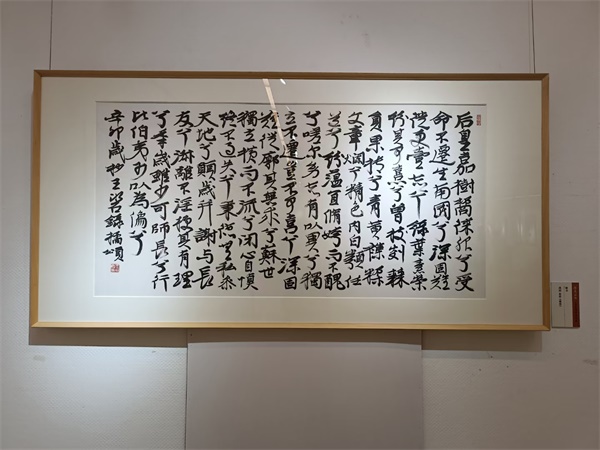 后皇嘉樹橘徠服兮受
命不遷生南國兮深固難
徙更壹志兮綠葉素榮
紛其可喜兮曾枝剡棘
員果摶兮青黃雜糅
文章爛兮精色內白類任
道兮紛蘊宜脩姱而不醜
兮嗟爾幼志有以異兮獨
立不遷豈不可喜兮深固
難徙廓其無求兮蘇世
獨立橫而不流兮閉心自慎
終不過失兮秉德無私參
天地兮願歲并謝与長
友兮淑離不淫梗其有理
兮年歲雖少可師長兮行
比伯夷可以為像兮
辛卯歲杪王錄橘頌